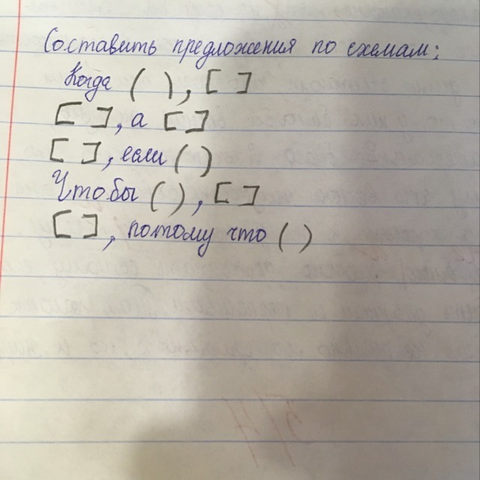 Составить предложения по схемам:
Когда ( ), [ ]
[ ], а [ ]
[ ], если ( )
Чтобы ( ), [ ]
[ ], потому что ( )